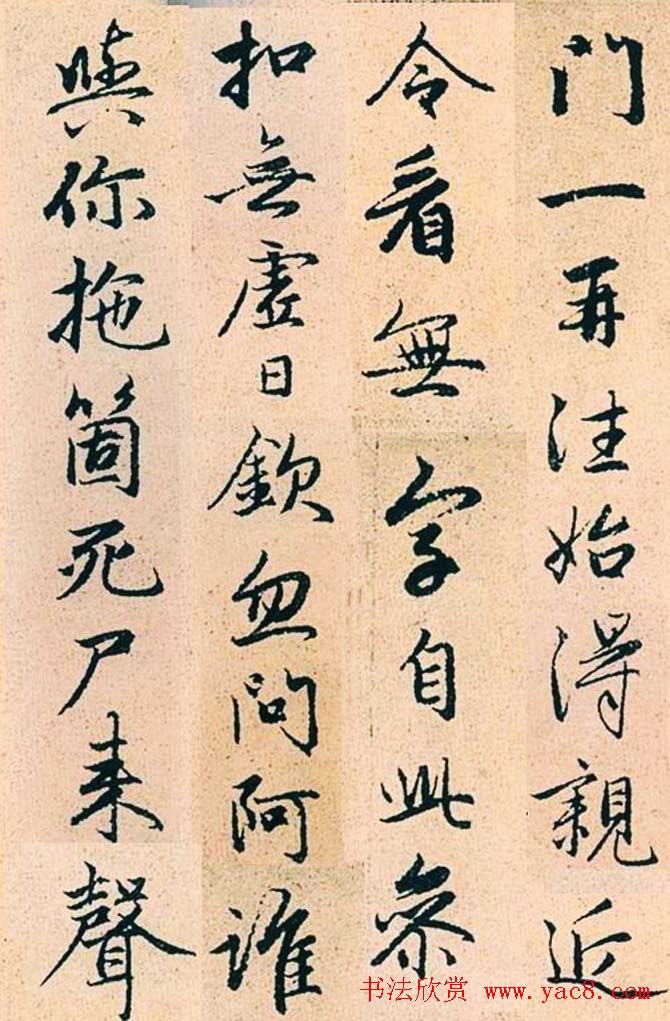 門一再往始得親近
令看無字自此參
扣無虛日欽忽問阿誰
與你拖箇死尸来聲
书法欣赏 www.yac8.com